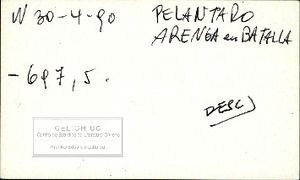 N 30-4-90
PELANTARO
ARENGA en BATALLA
-697,5.
DESC)
CELICH UC
Centro de Estudios de Literatura Chilena